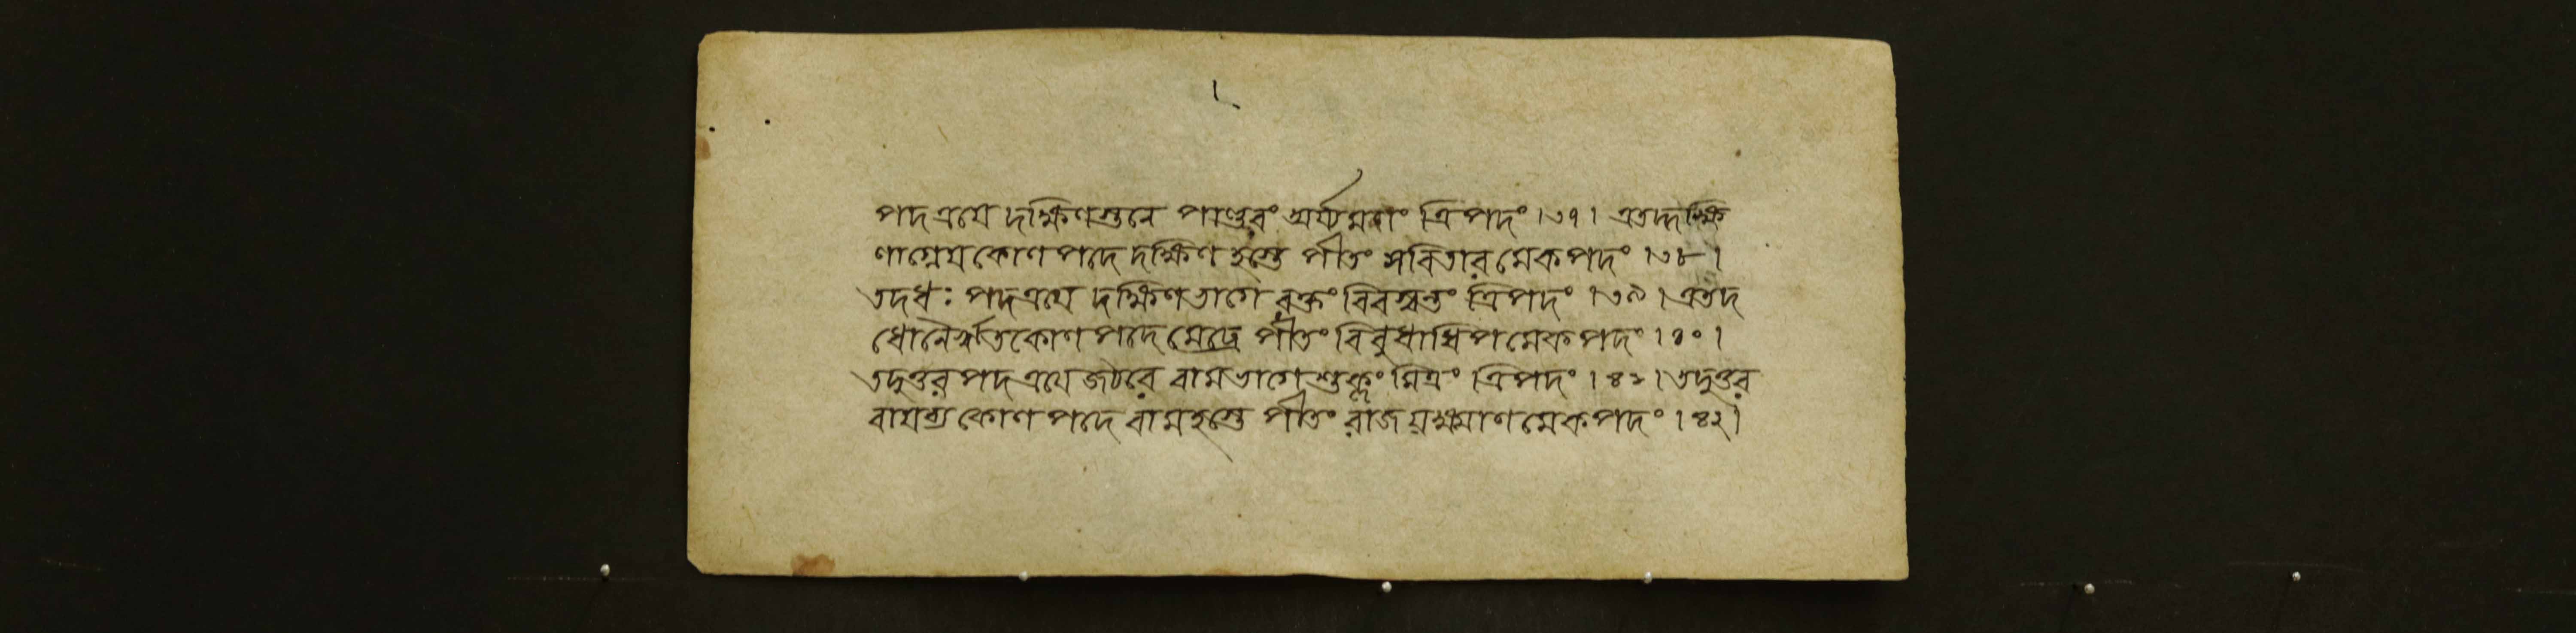 পদত্রয়ে দক্ষিণস্তনে পাণ্ডুরং অর্য্যমণং ত্রিপদং ।৩৭। এতদ্দক্ষি
ণাগ্নেয়কোণপদে দক্ষিণহস্তে পীতং সবিতারমেকপদং ।৩৮।
তদধঃ পদত্রয়ে দক্ষিণভাগে রক্তং বিবস্বন্তং ত্রিপদং ।৩৯। এতদ
ধোনৈর্ঋতকোণপদে মেঢ্রে পীতং বিবুধাধিপমেকপদং ।৪০।
তদুত্তরপদত্রয়ে জঠরে বামভাগে শুক্লং মিত্রং ত্রিপদং ।৪১। তদুত্তর
বায়ব্যকোণপদে বামহস্তে পীতং রাজয়ক্ষ্মাণমেকপদং ।৪২।